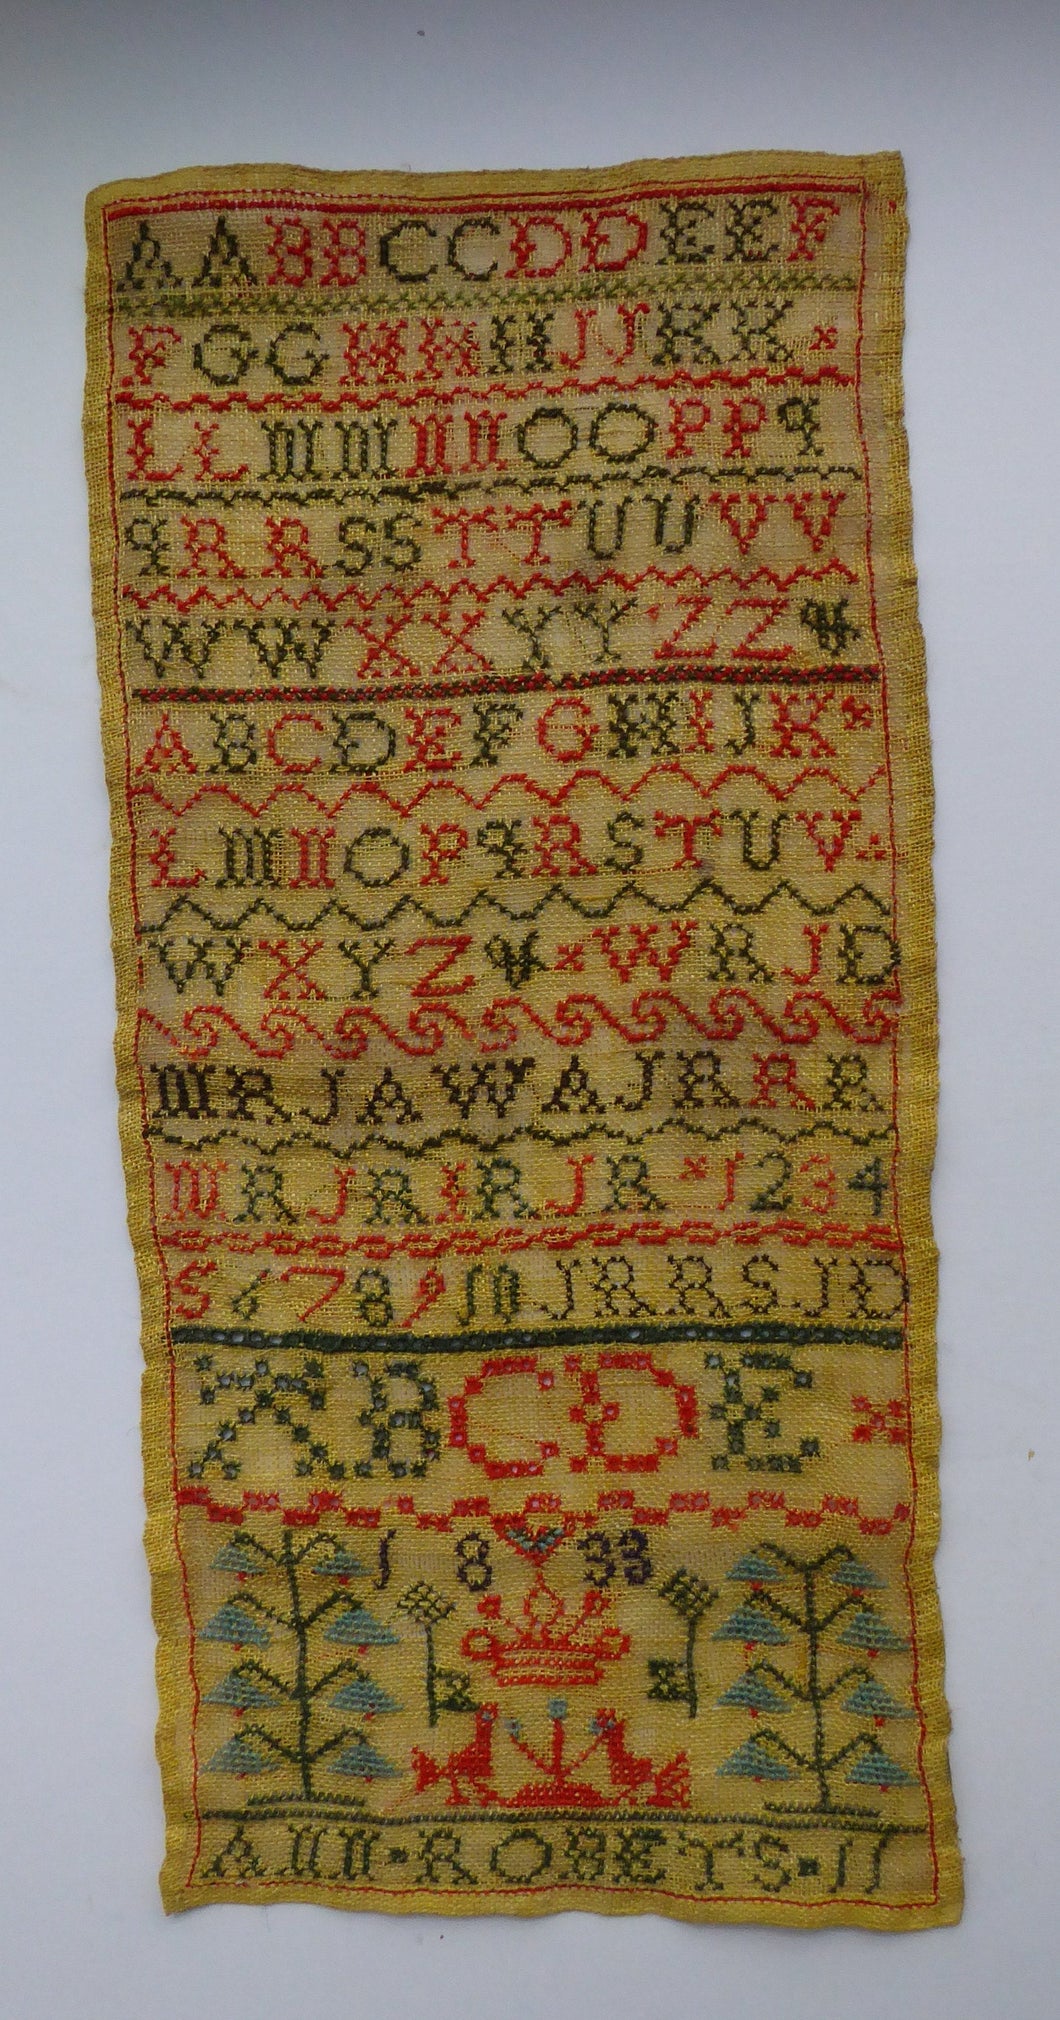 AABBCCDDEEF
FGGHHIIJJKK
LLMMNNOOPPq
qRRSSTTUUVV
WWXXYYZZ&
ABCDEFGHIJK
LMNOPqRSTUV
WXYZ& WRJD
MRJAWAJRRR
MRJRIRJR 1234
5678910JRRSJD
ABCDE
1833
ANN·ROBETS·11